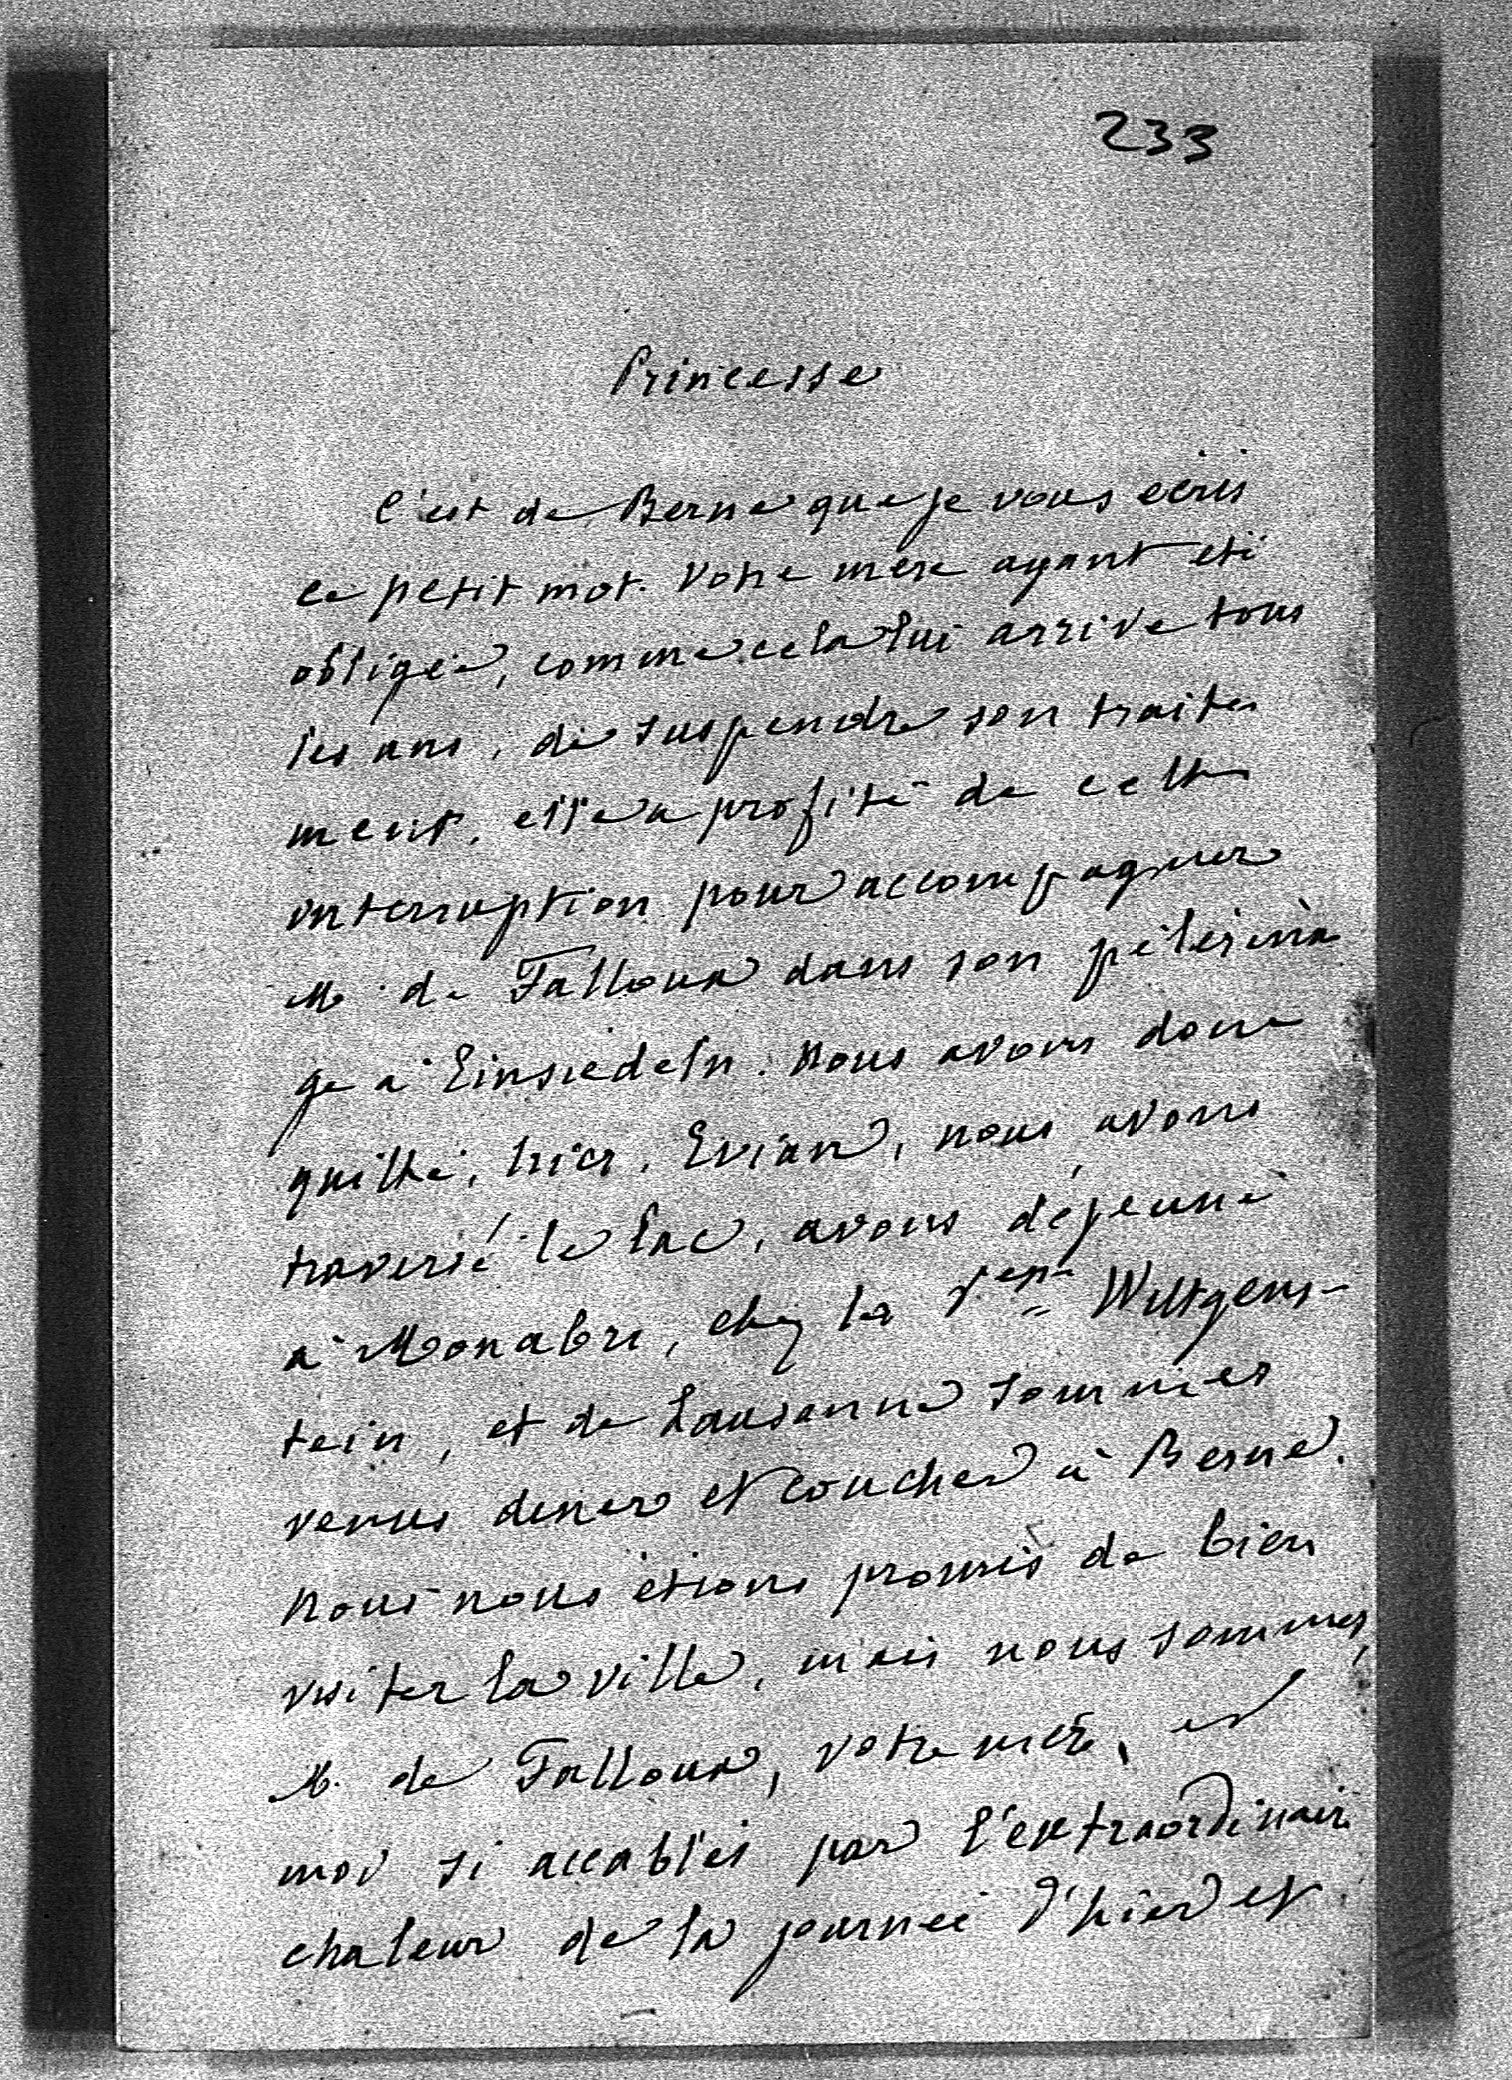 233
Princesse
C'est de Berne que je vous écris
ce petit mot. Votre mère ayant été
obligée, comme cela lui arrive tous
les ans, de suspendre son traite
ment, elle a profité de cette
interruption pour accompagner
M. de Falloux dans son pélerina
ge à Einsiedeln. Nous avons donc
quitté, hier, Evian, nous avons
traversé le lac, avons déjeuné
à Monabri, chez la Wittgens-
tein, et de Lausanne sommes
venus diner et coucher à Berne.
Nous nous étions promis de bien
visiter la ville, mais nous sommes,
M. de Falloux, votre mère, et
moi si accablés par l'extraordinaire
chaleur de la journée d'hier et